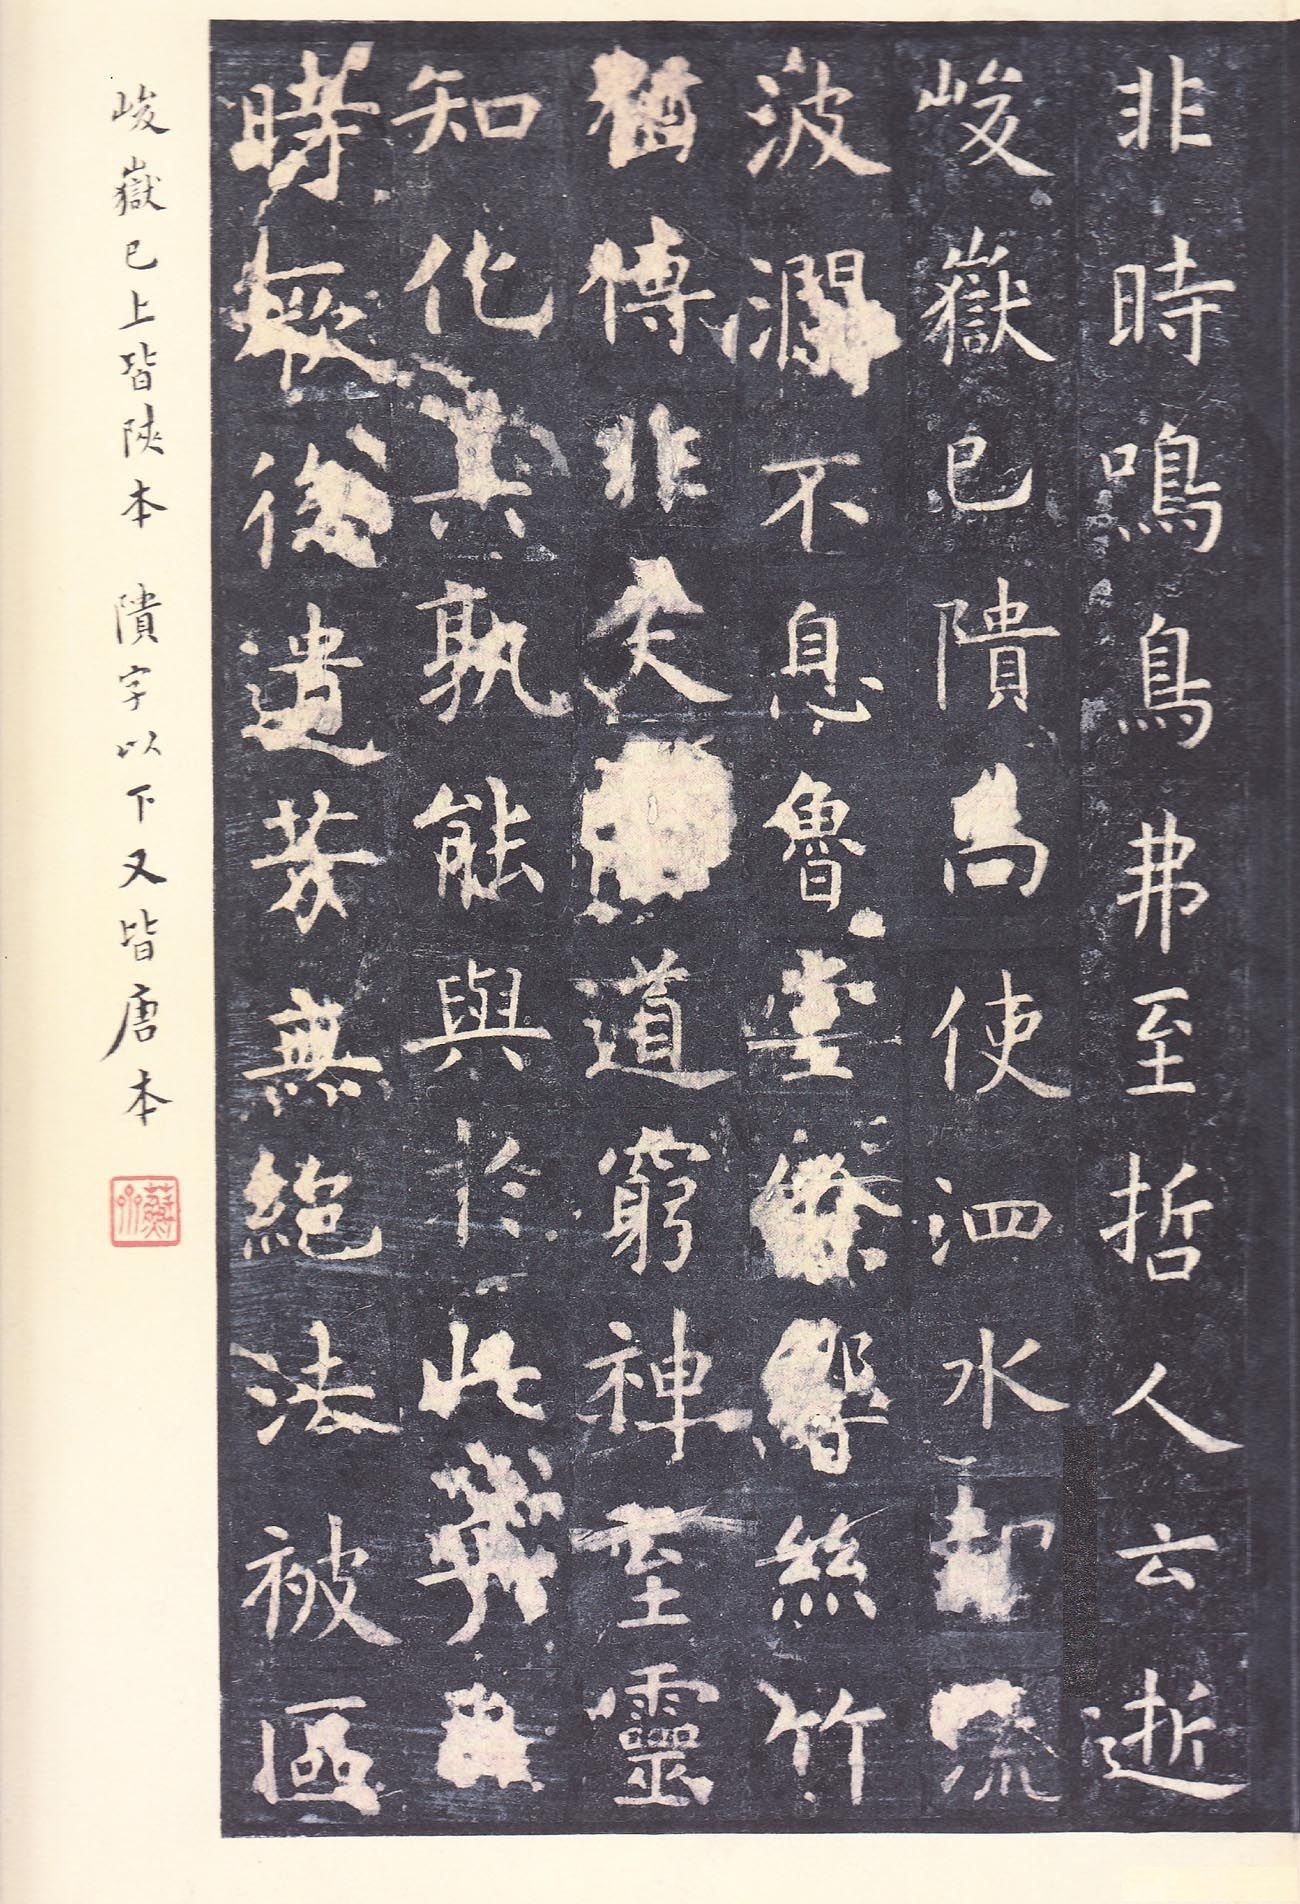 非時鳴鳥弗至哲人云逝
峻嶽已隤尚使泗水却流
波瀾不息魯堂餘響絲竹
猶傳非夫道窮神至靈
知化其孰能與於此
時被後遺芳無絕法被區
峻嶽已上皆陜本 隤字以下又皆唐本